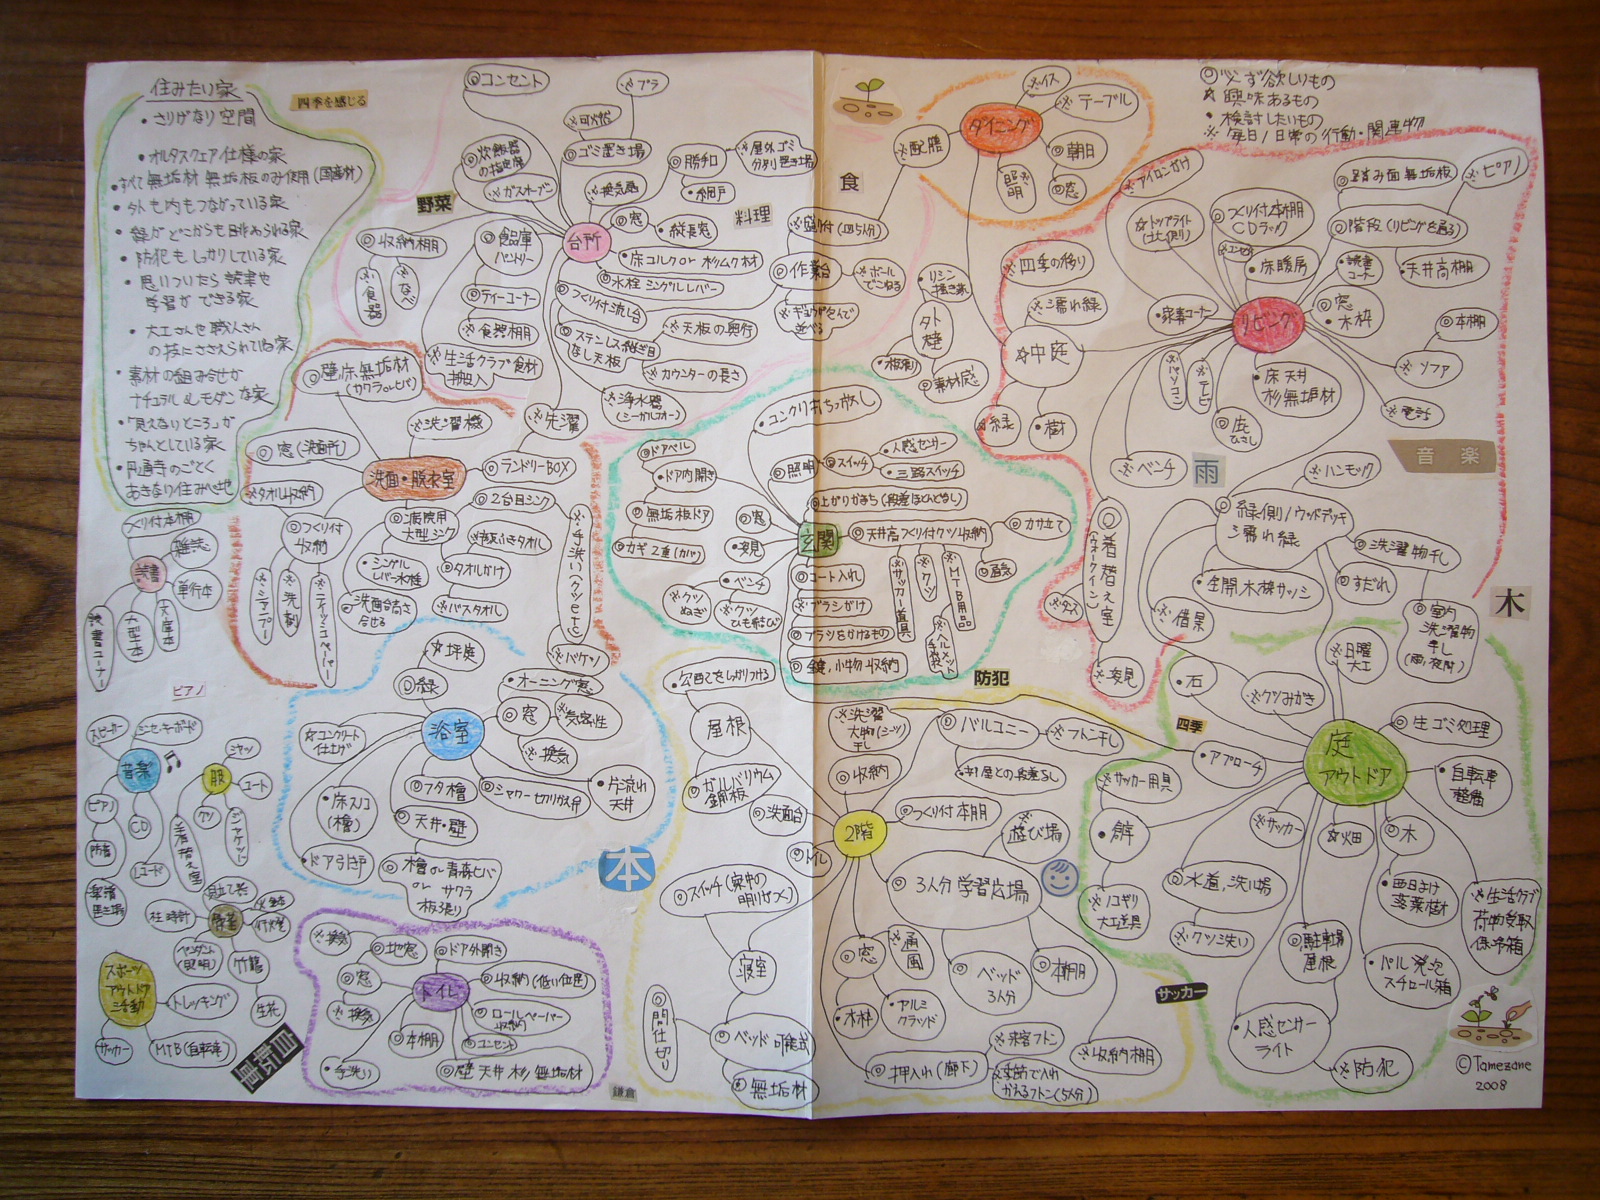 住みたい家
・さりげない空間
・オルタスクェア仕様の家
・すべて無垢材 無垢板のみ使用(国産材)
・外も内もつながっている家
・緑がどこからも眺められる家
・防犯もしっかりしている家
・思いついたら読書や
学習ができる家
・大工さんや職人さん
の技にささえられている家
・素材の組み合せが
ナチュラル&モダンな家
・「見えないところ」が
ちゃんとしている家
・円通寺のごとく
あきない住みべ地
四季を感じる
◎必ず欲しいもの
☆興味あるもの
・検討したいもの
※毎日/日常の行動・関連物
野菜
料理
食
台所
◎コンセント
※プラ
※可燃
◎ゴミ置き場
※ガスオーブン
※換気扇
◎勝手口
・網戸
※屋外ゴミ
分別置き場
◎窓
・縦長窓
・床コルク or 杉ムク材
◎水栓 シングルレバー
◎つくり付流し台
◎ステンレス継ぎ目
なし天板
※天板の奥行
※カウンターの長さ
◎浄水器
(シーガルフォー)
◎食品庫
パントリー
◎ティーコーナー
※食器棚
※生活クラブ食材
搬入
◎収納棚
※食器
※なべ
◎作業台
※ボール
でこねる
※盛り付(皿5人分)
※配膳
ダイニング
※イス
※テーブル
◎朝日
◎窓
照明
☆中庭
※四季の移り
※濡れ縁
・緑
・樹
外壁
・板張り
◎素材感
リビング
※アイロンがけ
☆トップライト
◎つくり付本棚
CDラック
・床暖房
◎踏み面無垢板
※ピアノ
◎階段(リビングを通る)
・読書
コーナー
・天井高棚
◎窓
・木枠
◎本棚
※ソファ
※電話
・家事コーナー
※パソコン
※テレビ
・床 天井
杉無垢材
◎庇
ひさし
※ベンチ
雨
音楽
木
※ハンモック
◎縁側/ウッドデッキ
濡れ縁
◎全開木枠サッシ
◎すだれ
※洗濯物干し
◎室内
洗濯物
干し
(雨,夜間)
※借景
◎着替え室
(ウォークイン)
※タンス
※姿見
洗面・脱衣室
◎壁床無垢材
(サワラorヒバ)
◎窓(洗面所)
※洗濯機
※洗濯
◎ランドリーBOX
※タオル収納
◎つくり付
収納
※シャンプー
※洗剤
※ティッシュペーパー
◎病院用
大型シンク
・シングル
レバー水栓
・洗面台高さ
合せる
◎2台目シンク
※タオルかけ
※バスタオル
※バケツ
玄関
・コンクリ打ちっ放し
◎照明
※スイッチ
・人感センサー
・三路スイッチ
◎ドアベル
・ドア内開き
◎無垢板ドア
◎窓
・姿見
・ベンチ
※クツ
ぬぎ
※クツ
ひも結び
◎上がりかまち(段差ほとんどなし)
◎天井高つくり付クツ収納
◎カサ立て
◎通気
※サッカー道具
※クツ
※MTB用品
※ヘルメット
手袋
◎コート入れ
※ブラシがけ
◎ブラシをかけるもの
◎鍵,小物収納
防犯
浴室
☆坪庭
◎緑
・オーニング窓
◎窓
※気密性
※換気
☆コンクリート
仕上げ
・床スノコ
(檜)
・ドア引き戸
◎フタ檜
・天井・壁
◎檜 or 青森ヒバ
or サワラ
板張り
◎シャワー切りかえ弁
・片流れ
天井
トイレ
※換気
◎地窓
◎ドア外開き
◎窓
◎収納(低い位置)
◎ロールペーパー
収納
◎コンセント
◎本棚
・手洗い
◎壁 天井 杉 無垢材
鎌倉
本
読書
つくり付本棚
雑誌
単行本
文庫本
大型本
読書コーナー
ピアノ
音楽
スピーカー
ピアノ
CD
レコード
防音
服
シャツ
コート
クツ
着替え室
柱時計
ペンダント
(照明)
竹籠
生花
スポーツ
アウトドア
活動
トレッキング
サッカー
MTB(自転車)
自転車
屋根
・勾配をしっかりつける
◎ガルバリウム
鋼板
2階
◎収納
◎洗面台
◎トイレ
※洗濯
大物(シーツ)
干し
◎バルコニー
※フトン干し
◎つくり付本棚
※遊び場
◎3人分学習広場
◎ベッド
3人分
◎本棚
※収納棚
◎窓
・木枠
※通風
・アルミ
クラッド
◎押入れ(廊下)
※来客フトン
※季節で入れ
かえるフトン(5人分)
・スイッチ(家中の
明りがつく)
寝室
◎間仕切り
◎ベッド可能式
◎無垢材
四季
サッカー
庭
アウトドア
※日曜
大工
・石
※クツみがき
・アプローチ
◎生ゴミ処理
・自転車
整備
※サッカー用具
・納屋
※ノコギリ
大工道具
※サッカー
☆畑
◎木
・西日よけ
落葉樹
◎水道,洗い場
※クツ洗い
◎駐車場
屋根
・人感センサー
ライト
※防犯
※生活クラブ
荷物受取
保冷箱
・パル発泡
スチロール箱
©Tamezane
2008